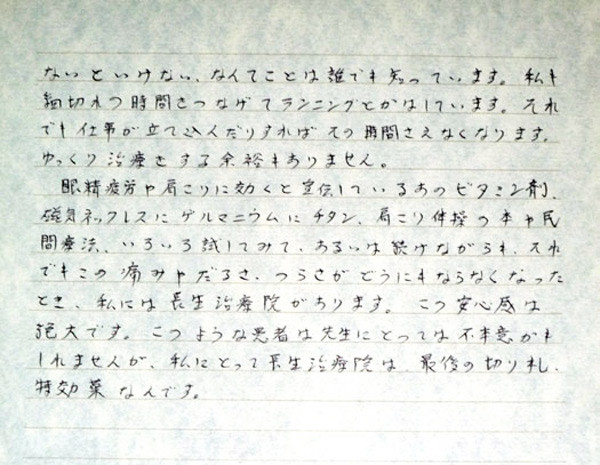 ないといけない、なんてことは誰でも知っています。私も
細切れの時間をつなげてランニングとかはしています。それ
でも仕事が立て込んだりすればその時間さえなくなります。
ゆっくり治療をする余裕もありません。
眼精疲労や肩こりに効くと宣伝しているあのビタミン剤、
磁気ネックレスにゲルマニウムにチタン、肩こり体操の本や民
間療法、いろいろ試してみて、あるいは続けながらも、それ
でもこの痛みやだるさ、つらさがどうにもならなくなった
とき、私には長生治療院があります。この安心感は
絶大です。このような患者は先生にとっては不本意かも
しれませんが、私にとって長生治療院は、最後の切り札、
特効薬なんです。